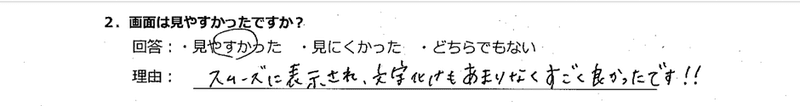 2．画面は見やすかったですか？
回答：・見やすかった ・見にくかった ・どちらでもない
理由： スムーズに表示され、文字化けもあまりなくすごく良かったです!!